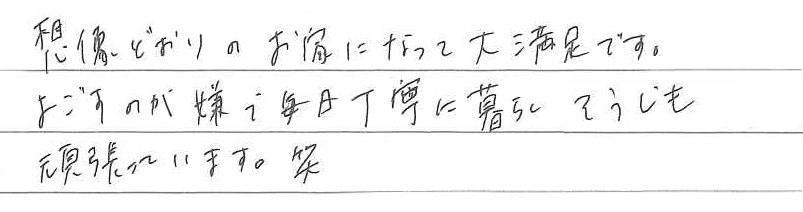 想像どおりのお家になって大満足です。
よごすのが嫌で毎日丁寧に暮らし そうじも
頑張っています。笑